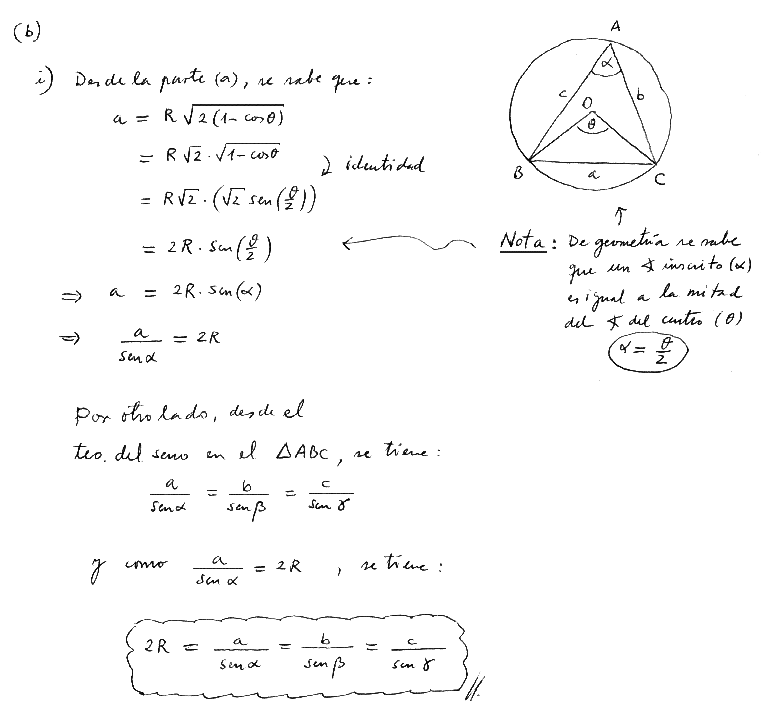 (b)
i) Desde la parte (a), se sabe que:
a = R √2(1 - cosθ)
= R √2 · √1 - cosθ
= R√2 · (√2 sen(θ/2))
identidad
= 2R · sen(θ/2)
⇒ a = 2R · sen(α)
⇒ a/senα = 2R
A
α
c
b
O
θ
B
a
C
Nota: De geometría se sabe
que un ∢ inscrito (α)
es igual a la mitad
del ∢ del centro (θ)
α = θ/2
Por otro lado, desde el
teo. del seno en el △ABC, se tiene:
a/senα = b/senβ = c/sen γ
y como a/sen α = 2R , se tiene:
2R = a/senα = b/sen β = c/sen γ